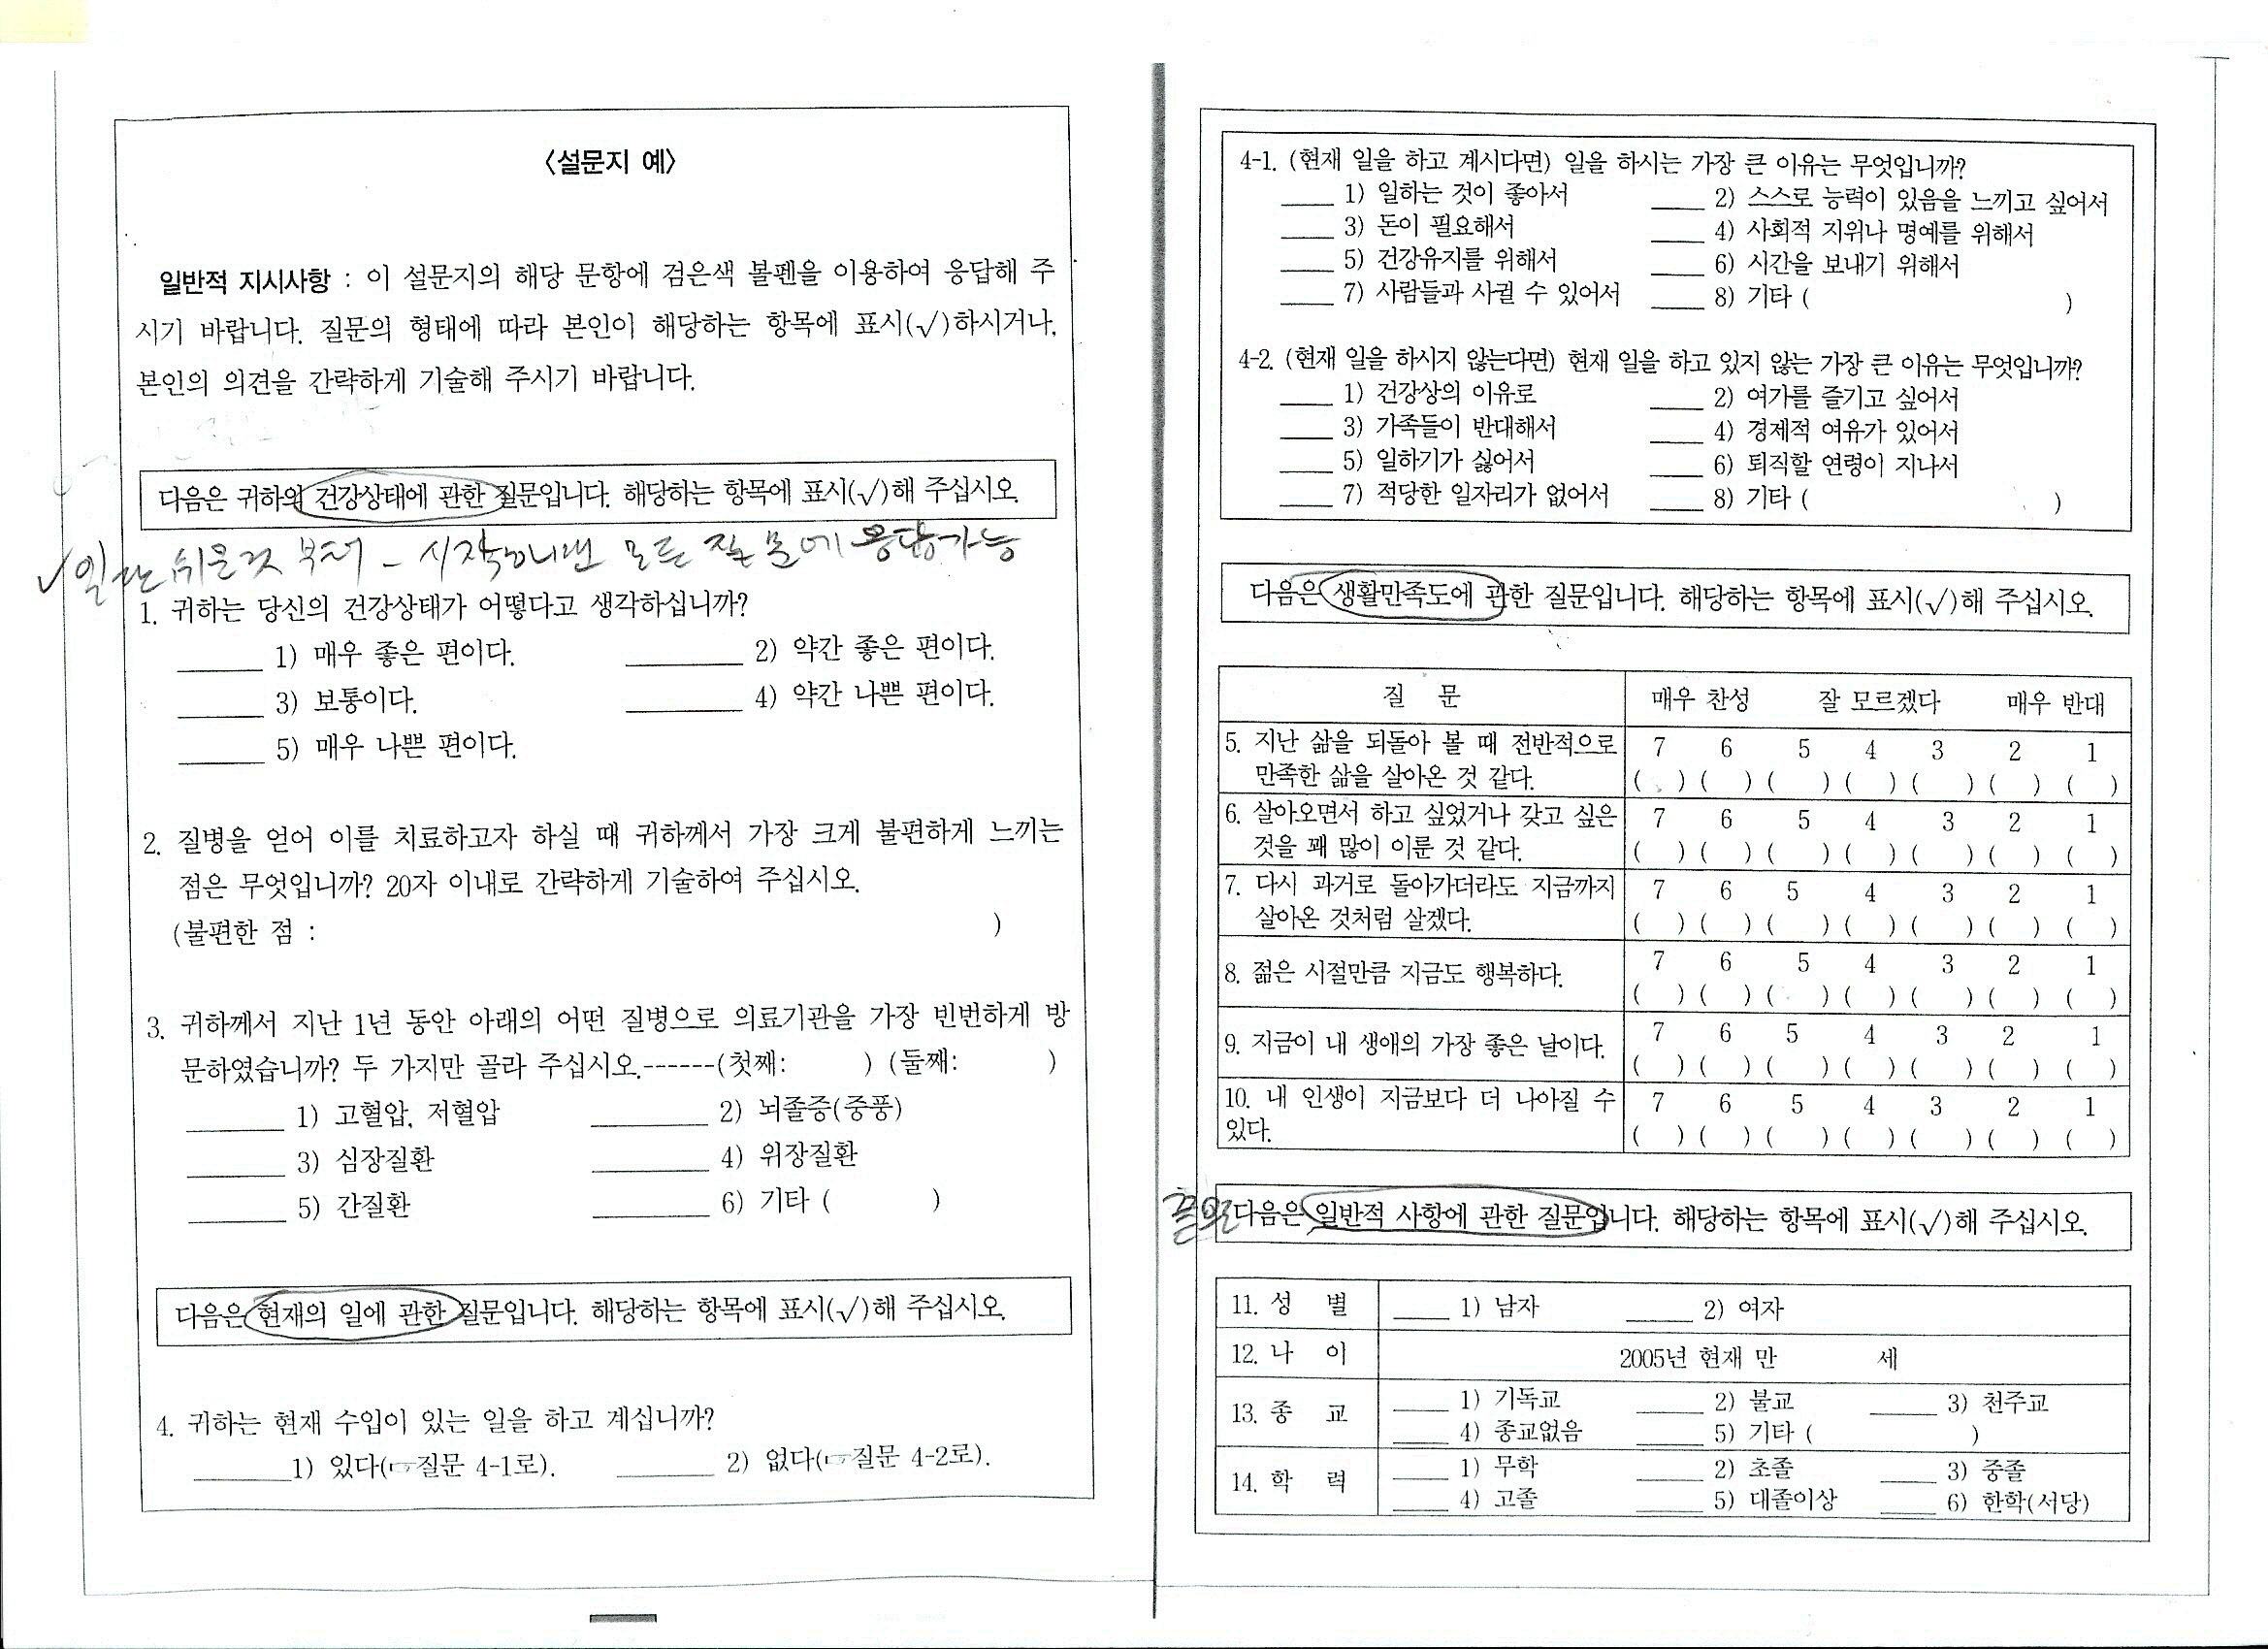 〈설문지 예〉
일반적 지시사항 : 이 설문지의 해당 문항에 검은색 볼펜을 이용하여 응답해 주
시기 바랍니다. 질문의 형태에 따라 본인이 해당하는 항목에 표시(√)하시거나,
본인의 의견을 간략하게 기술해 주시기 바랍니다.
다음은 귀하의 건강상태에 관한 질문입니다. 해당하는 항목에 표시(√)해 주십시오.
√일단 쉬운것 부터 - 시작하니깐 모든 질문에 응답가능
1. 귀하는 당신의 건강상태가 어떻다고 생각하십니까?
______ 1) 매우 좋은 편이다. ______ 2) 약간 좋은 편이다.
______ 3) 보통이다. ______ 4) 약간 나쁜 편이다.
______ 5) 매우 나쁜 편이다.
2. 질병을 얻어 이를 치료하고자 하실 때 귀하께서 가장 크게 불편하게 느끼는
점은 무엇입니까? 20자 이내로 간략하게 기술하여 주십시오.
(불편한 점 : )
3. 귀하께서 지난 1년 동안 아래의 어떤 질병으로 의료기관을 가장 빈번하게 방
문하였습니까? 두 가지만 골라 주십시오.------(첫째: ) (둘째: )
______ 1) 고혈압, 저혈압 ______ 2) 뇌졸증(중풍)
______ 3) 심장질환 ______ 4) 위장질환
______ 5) 간질환 ______ 6) 기타 ( )
다음은 현재의 일에 관한 질문입니다. 해당하는 항목에 표시(√)해 주십시오.
4. 귀하는 현재 수입이 있는 일을 하고 계십니까?
______1) 있다(☞질문 4-1로). ______ 2) 없다(☞질문 4-2로).
4-1. (현재 일을 하고 계시다면) 일을 하시는 가장 큰 이유는 무엇입니까?
____ 1) 일하는 것이 좋아서 ____ 2) 스스로 능력이 있음을 느끼고 싶어서
____ 3) 돈이 필요해서 ____ 4) 사회적 지위나 명예를 위해서
____ 5) 건강유지를 위해서 ____ 6) 시간을 보내기 위해서
____ 7) 사람들과 사귈 수 있어서 ____ 8) 기타 ( )
4-2. (현재 일을 하시지 않는다면) 현재 일을 하고 있지 않는 가장 큰 이유는 무엇입니까?
____ 1) 건강상의 이유로 ____ 2) 여가를 즐기고 싶어서
____ 3) 가족들이 반대해서 ____ 4) 경제적 여유가 있어서
____ 5) 일하기가 싫어서 ____ 6) 퇴직할 연령이 지나서
____ 7) 적당한 일자리가 없어서 ____ 8) 기타 ( )
다음은 생활만족도에 관한 질문입니다. 해당하는 항목에 표시(√)해 주십시오.
질 문 매우 찬성 잘 모르겠다 매우 반대
5. 지난 삶을 되돌아 볼 때 전반적으로 7 6 5 4 3 2 1
만족한 삶을 살아온 것 같다. ( ) ( ) ( ) ( ) ( ) ( ) ( )
6. 살아오면서 하고 싶었거나 갖고 싶은 7 6 5 4 3 2 1
것을 꽤 많이 이룬 것 같다. ( ) ( ) ( ) ( ) ( ) ( ) ( )
7. 다시 과거로 돌아가더라도 지금까지 7 6 5 4 3 2 1
살아온 것처럼 살겠다. ( ) ( ) ( ) ( ) ( ) ( ) ( )
8. 젊은 시절만큼 지금도 행복하다. 7 6 5 4 3 2 1
( ) ( ) ( ) ( ) ( ) ( ) ( )
9. 지금이 내 생애의 가장 좋은 날이다. 7 6 5 4 3 2 1
( ) ( ) ( ) ( ) ( ) ( ) ( )
10. 내 인생이 지금보다 더 나아질 수 7 6 5 4 3 2 1
있다. ( ) ( ) ( ) ( ) ( ) ( ) ( )
다음은 일반적 사항에 관한 질문입니다. 해당하는 항목에 표시(√)해 주십시오.
11. 성 별 ____ 1) 남자 ____ 2) 여자
12. 나 이 2005년 현재 만 세
13. 종 교 ____ 1) 기독교 ____ 2) 불교 ____ 3) 천주교
____ 4) 종교없음 ____ 5) 기타 ( )
14. 학 력 ____ 1) 무학 ____ 2) 초졸 ____ 3) 중졸
____ 4) 고졸 ____ 5) 대졸이상 ____ 6) 한학(서당)